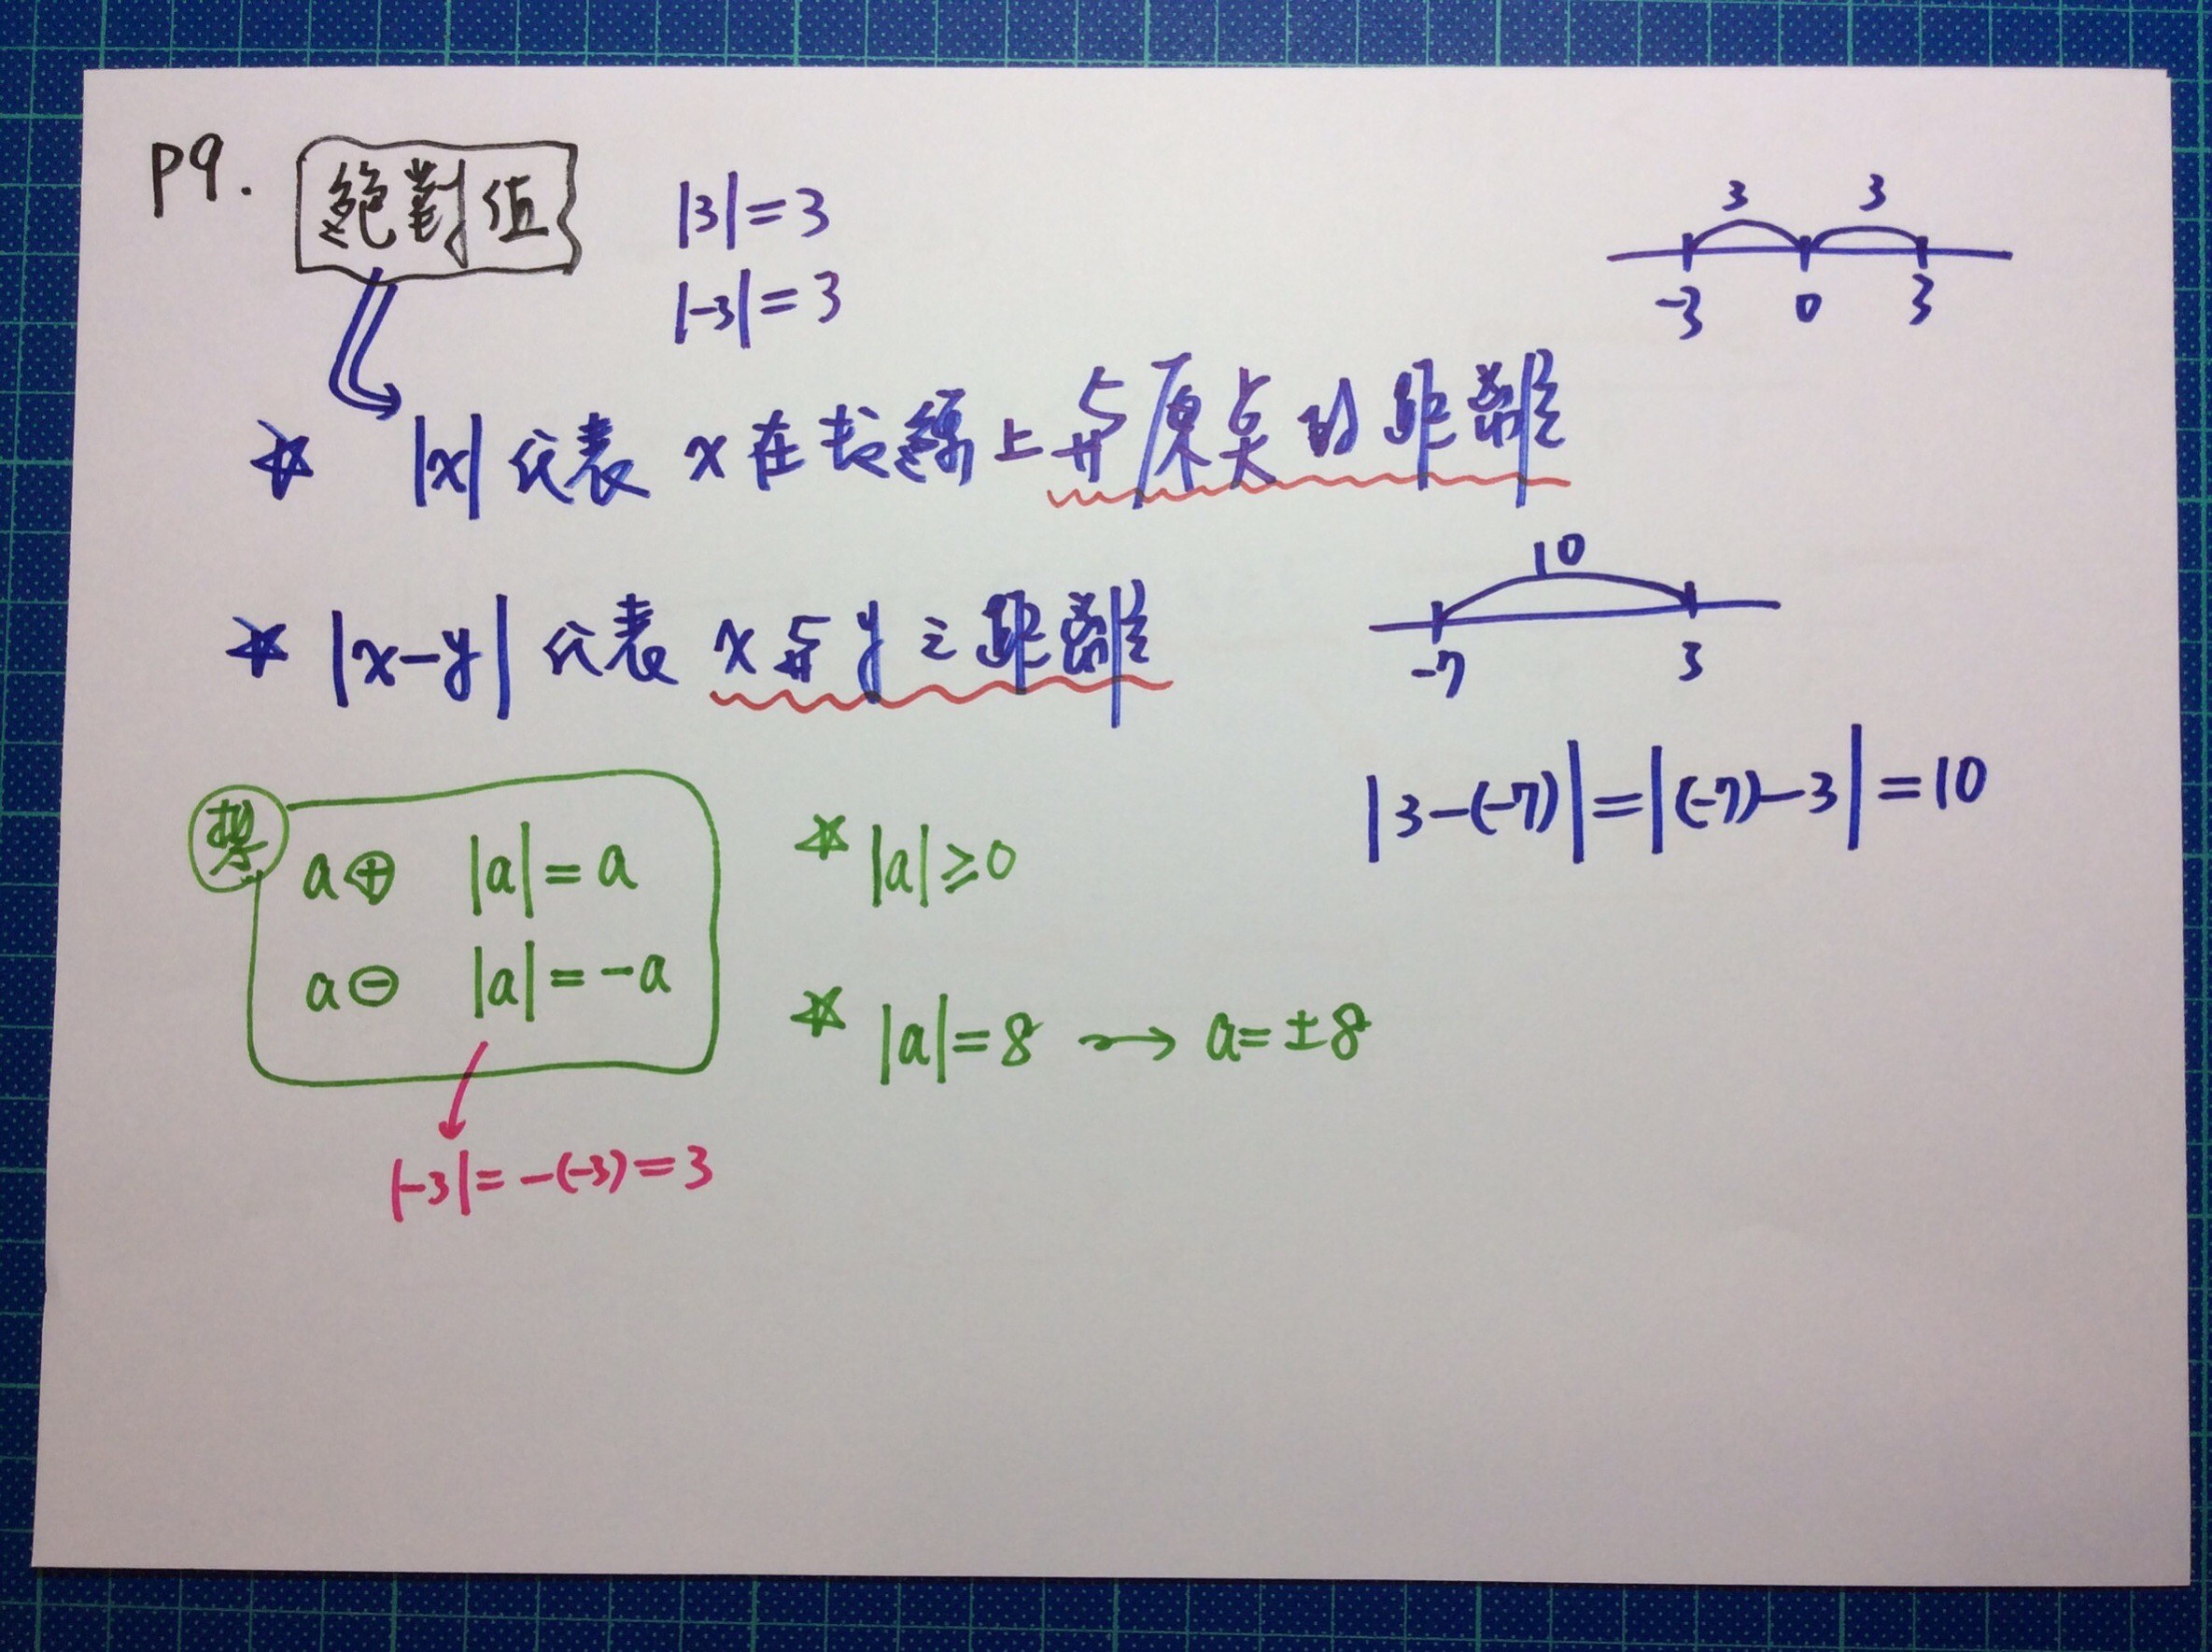 P9. 絕對值
|3|=3
|-3|=3
3 3
-3 0 3
☆ |x| 代表 x 在数線上与原点的距離
☆ |x-y| 代表 x 与 y 之距離
10
-7 3
|3-(-7)|=|(-7)-3|=10
a⊕ |a|=a
a⊖ |a|=-a
|-3|=-(-3)=3
☆ |a|≥0
☆ |a|=8 → a=±8